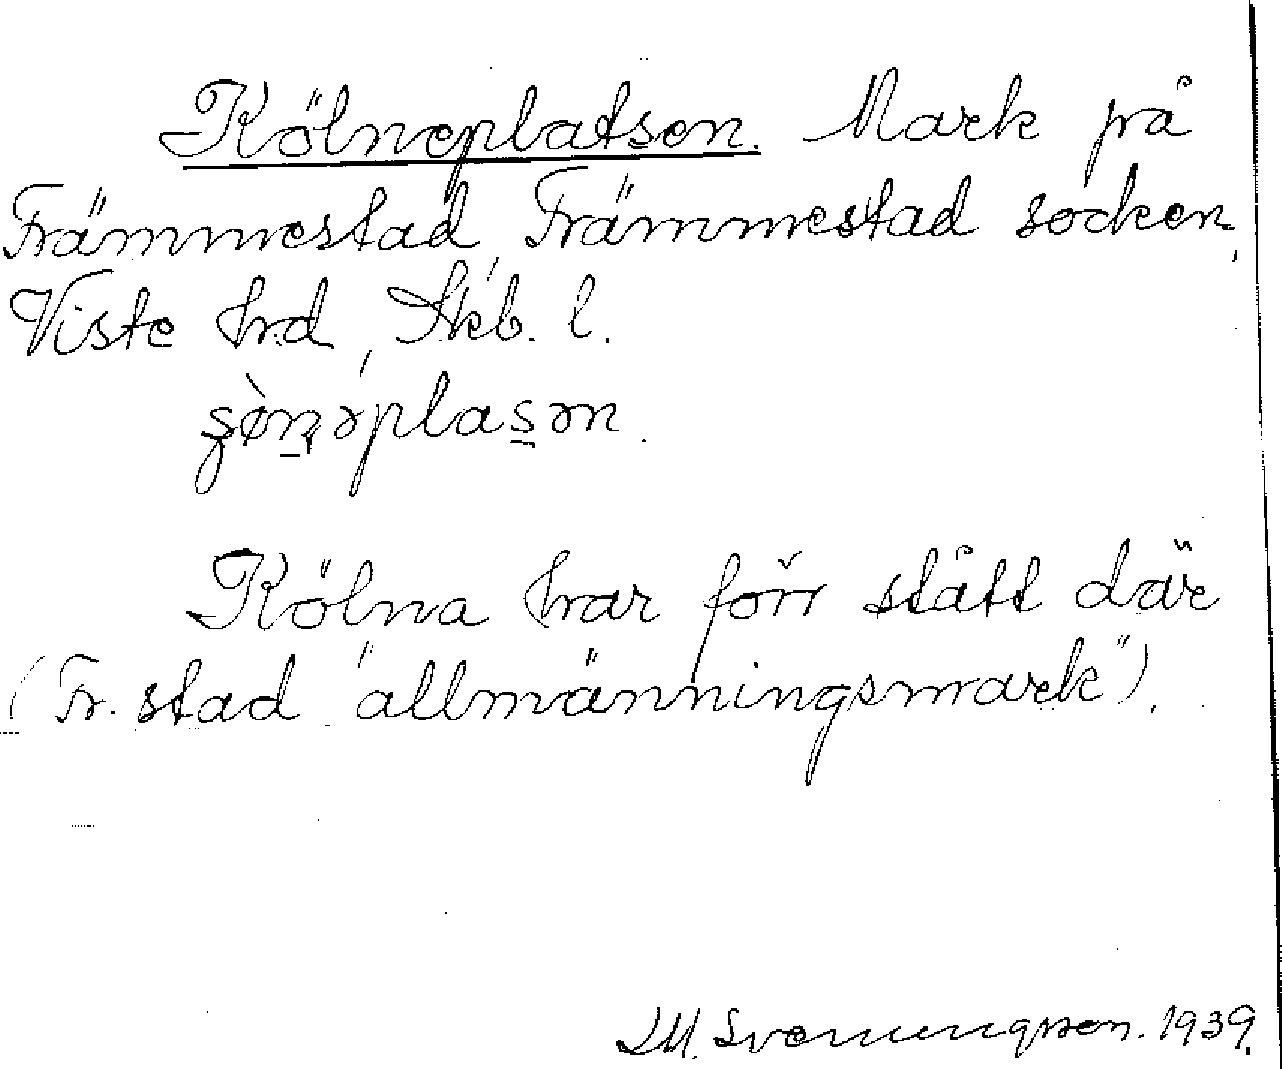 Kölneplatsen. Mark på
Främmestad, Främmestad socken,
Viste hrd, Skb. l.
Kölna har förr stått där
(Fr. stad "allmänningsmark").
Svenungsson. 1939.